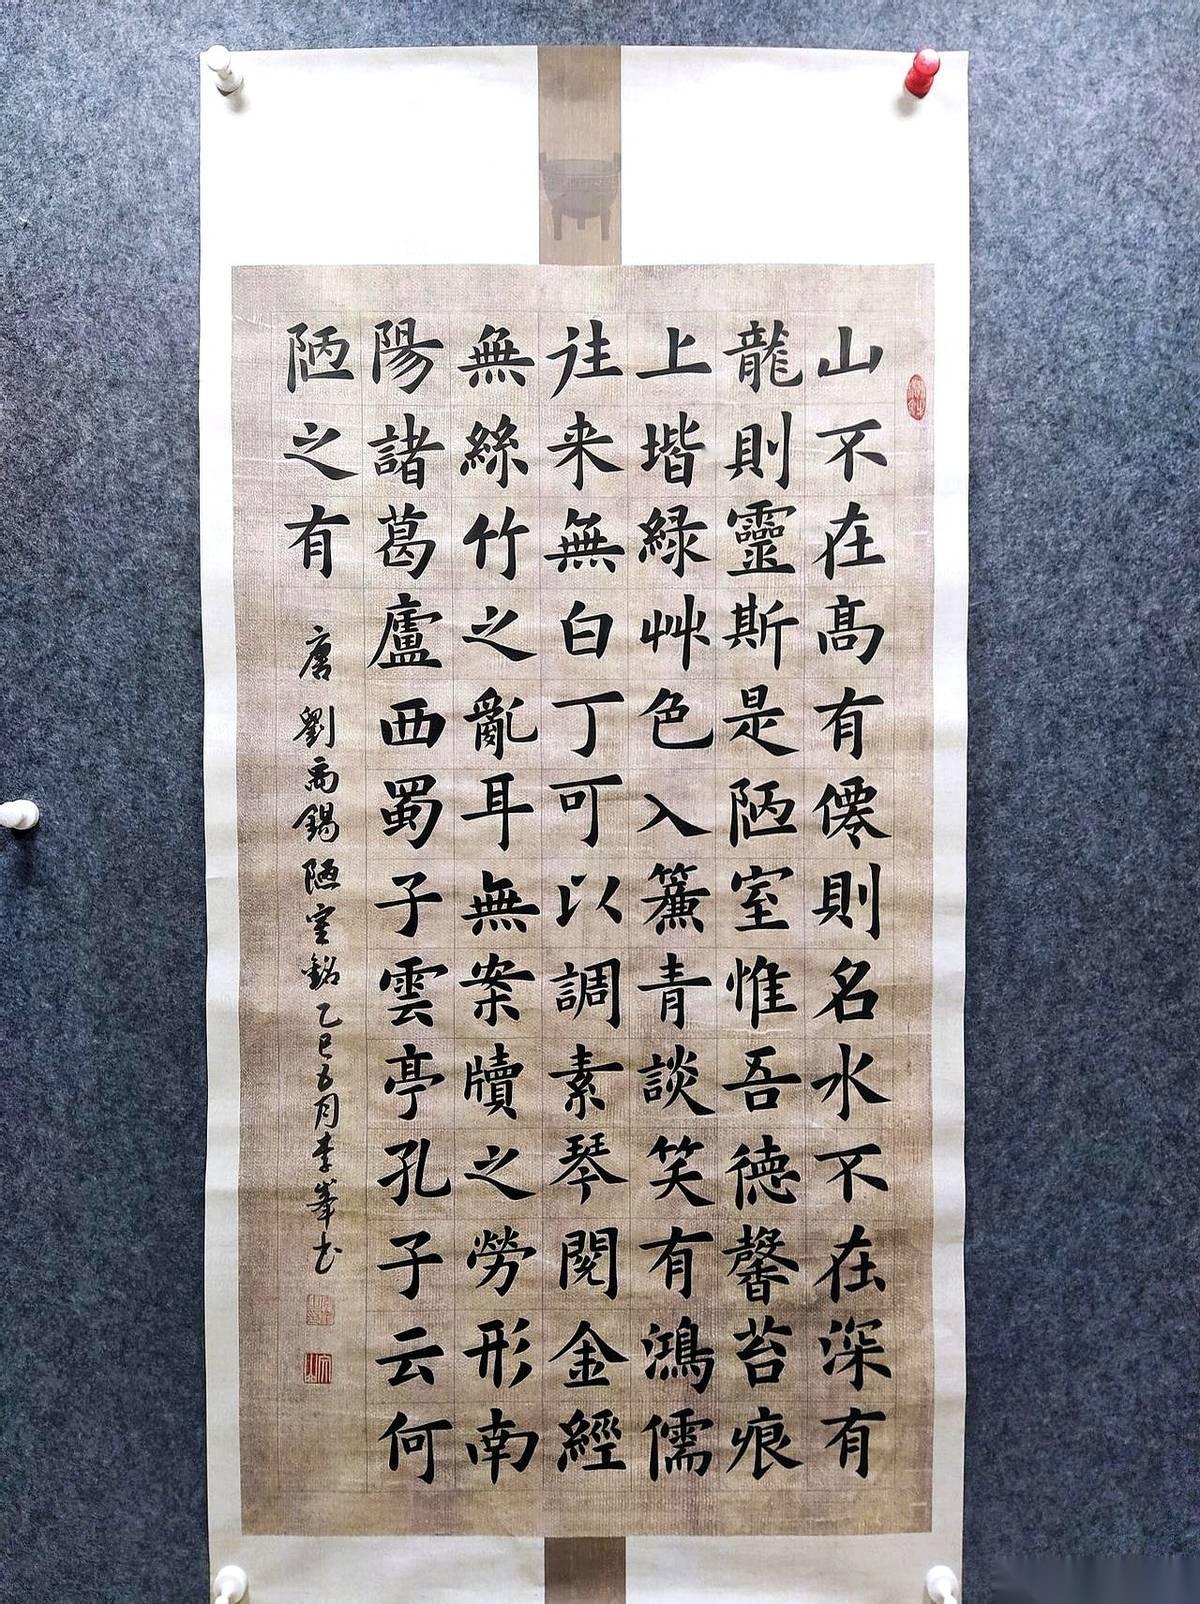 山不在高有僊則名水不在深有
龍則靈斯是陋室惟吾德馨苔痕
上堦緑艸色入簾青談笑有鴻儒
往来無白丁可以調素琴閱金經
無絲竹之亂耳無案牘之勞形南
陽諸葛廬西蜀子雲亭孔子云何
陋之有
唐劉禹錫陋室銘乙巳五月李峯书